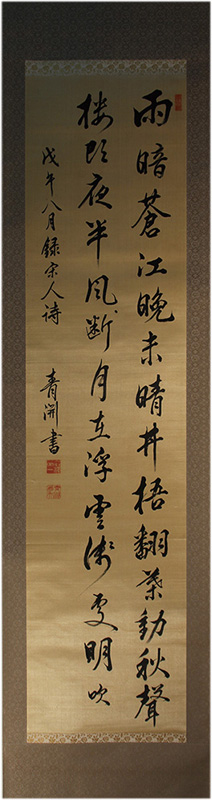 雨暗蒼江晚未晴井梧翻葉動秋聲
樓頭夜半風斷月在浮雲淺處明吹
戊午八月録宋人詩
青淵書